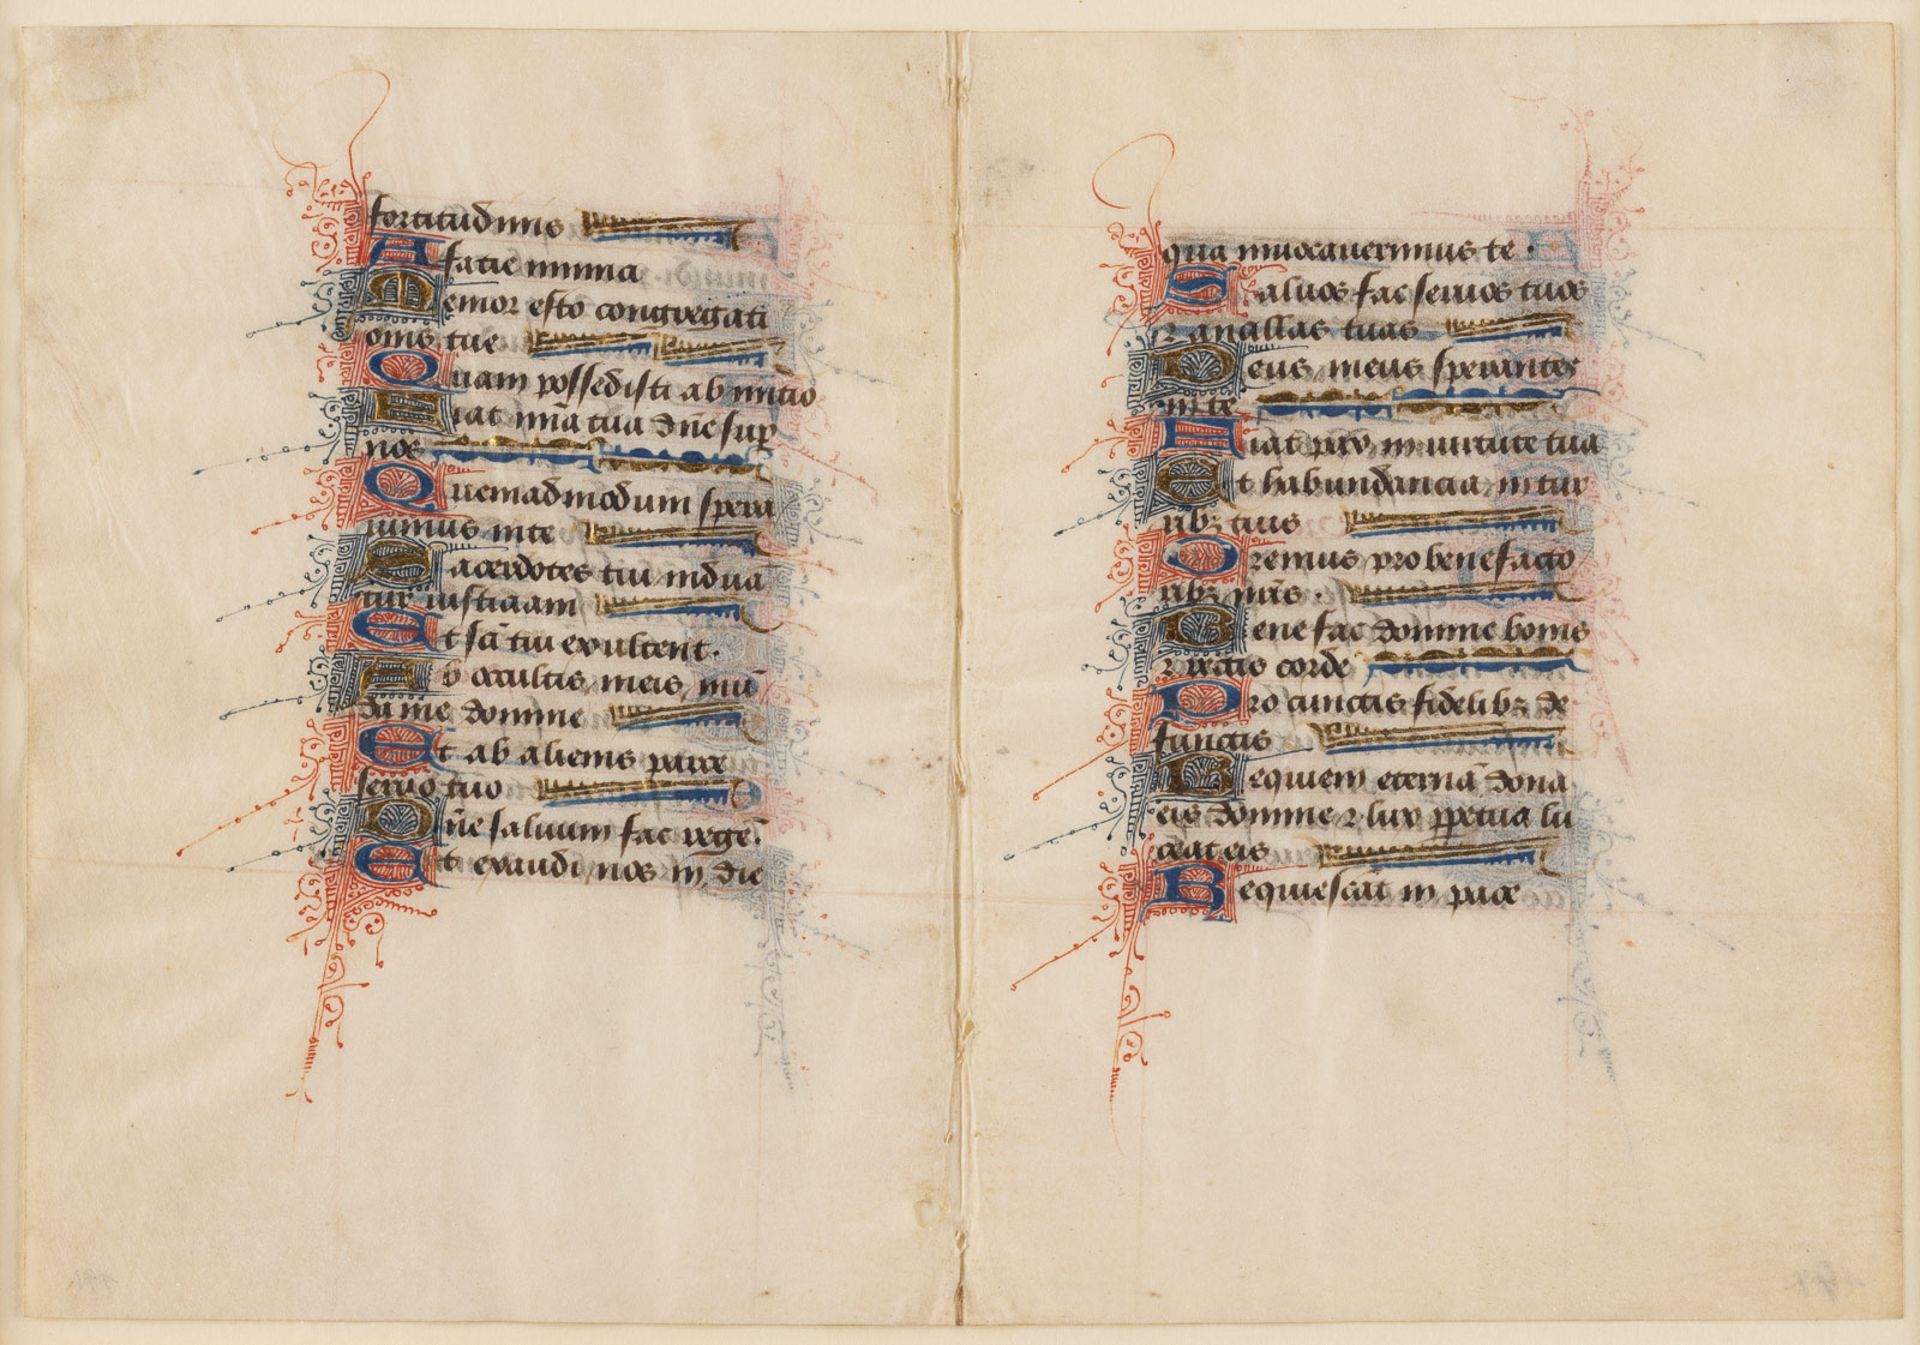 fortitudinis
A facie inimici
Memor esto congregati
onis tue
Quam possedisti ab initio
Fiat mīa tua dñe suꝑ
nos
Quemadmodum spera
uimus in te
Sacerdotes tui indua
tur iusticiam
Et scī tui exultent.
Ab occultis meis mū
da me domine
Et ab alienis parce
seruo tuo
Dñe saluum fac regē.
Et exaudi nos in die
qua inuocauerimus te.
Saluos fac seruos tuos
⁊ ancillas tuas
Deus meus sperantes
in te
Fiat pax in uirtute tua
Et habundancia in tur
ribꝫ tuis
Oremus pro benefacto
ribꝫ nr̄is.
Benefac domine bonis
⁊ rectis corde
Pro cunctis fidelibꝫ de
functis
Requiem eternā dona
eis domine ⁊ lux ꝑpetua lu
ceat eis
Requiescāt in pace